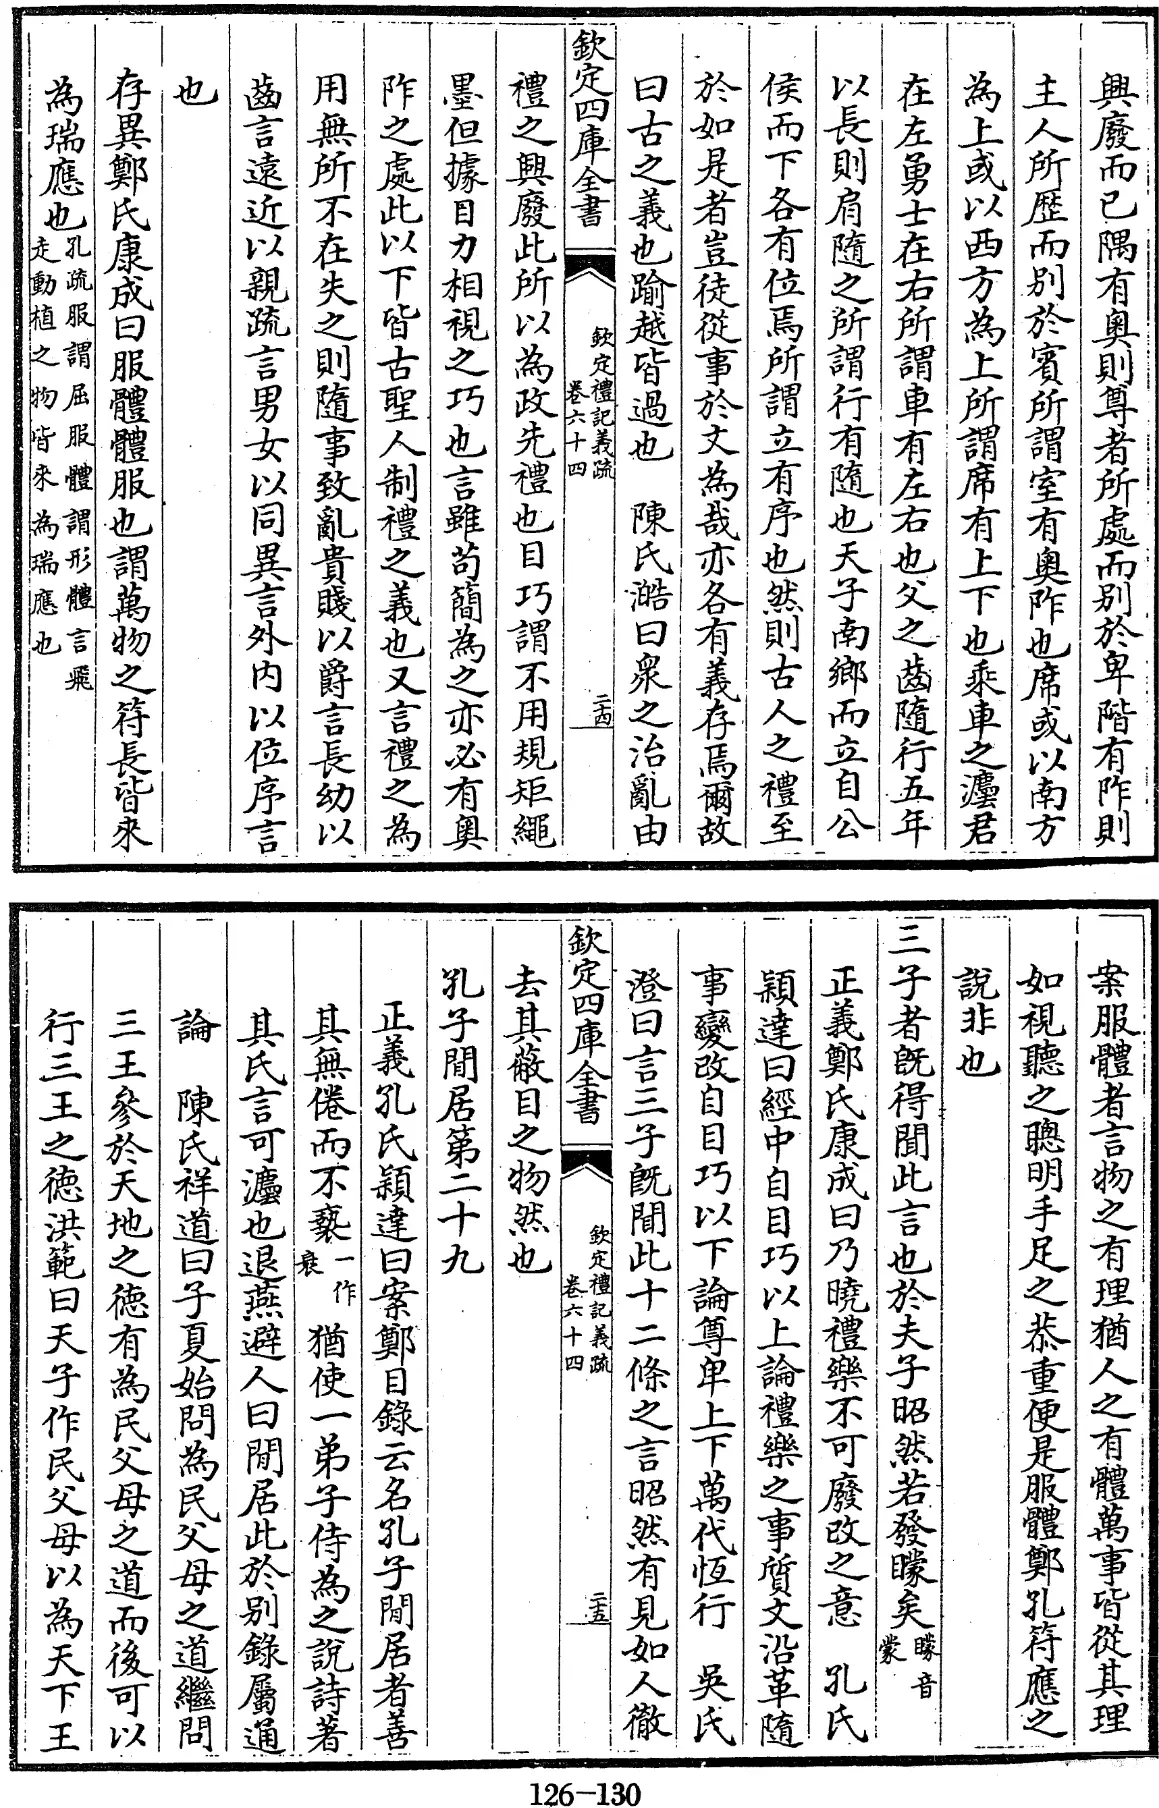 興廢而已隅有奥則尊者所處而别於卑階有阼則
主人所歴而别於賓所謂室有奥阼也席或以南方
為上或以西方為上所謂席有上下也乘車之灋君
在左勇士在右所謂車有左右也父之齒隨行五年
以長則肩隨之所謂行有隨也天子南鄉而立自公
侯而下各有位焉所謂立有序也然則古人之禮至
於如是者豈徒從事於文為哉亦各有義存焉爾故
曰古之義也踰越皆過也　陳氏澔曰衆之治亂由
欽定四庫全書
欽定禮記義疏
卷六十四
二十四
禮之興廢此所以為政先禮也目巧謂不用規矩繩
墨但據目力相視之巧也言雖苟簡為之亦必有奥
阼之處此以下皆古聖人制禮之義也又言禮之為
用無所不在失之則隨事致亂貴賤以爵言長幼以
齒言遠近以親疏言男女以同異言外内以位序言
也
存異鄭氏康成曰服體體服也謂萬物之符長皆來
為瑞應也
孔疏服謂屈服體謂形體言飛
走動植之物皆來為瑞應也
案服體者言物之有理猶人之有體萬事皆從其理
如視聽之聰明手足之恭重便是服體鄭孔符應之
說非也
三子者既得聞此言也於夫子昭然若發矇矣
矇音
蒙
正義鄭氏康成曰乃曉禮樂不可廢改之意　孔氏
穎達曰經中自目巧以上論禮樂之事質文沿革隨
事變改自目巧以下論尊卑上下萬代恆行　吳氏
澄曰言三子既聞此十二條之言昭然有見如人徹
欽定四庫全書
欽定禮記義疏
卷六十四
二十五
去其蔽目之物然也
孔子閒居第二十九
正義孔氏穎達曰案鄭目錄云名孔子閒居者善
其無倦而不䙝
一作
衰
猶使一弟子侍為之說詩著
其氏言可灋也退燕避人曰閒居此於别錄屬通
論　陳氏祥道曰子夏始問為民父母之道繼問
三王參於天地之德有為民父母之道而後可以
行三王之德洪範曰天子作民父母以為天下王
126-130